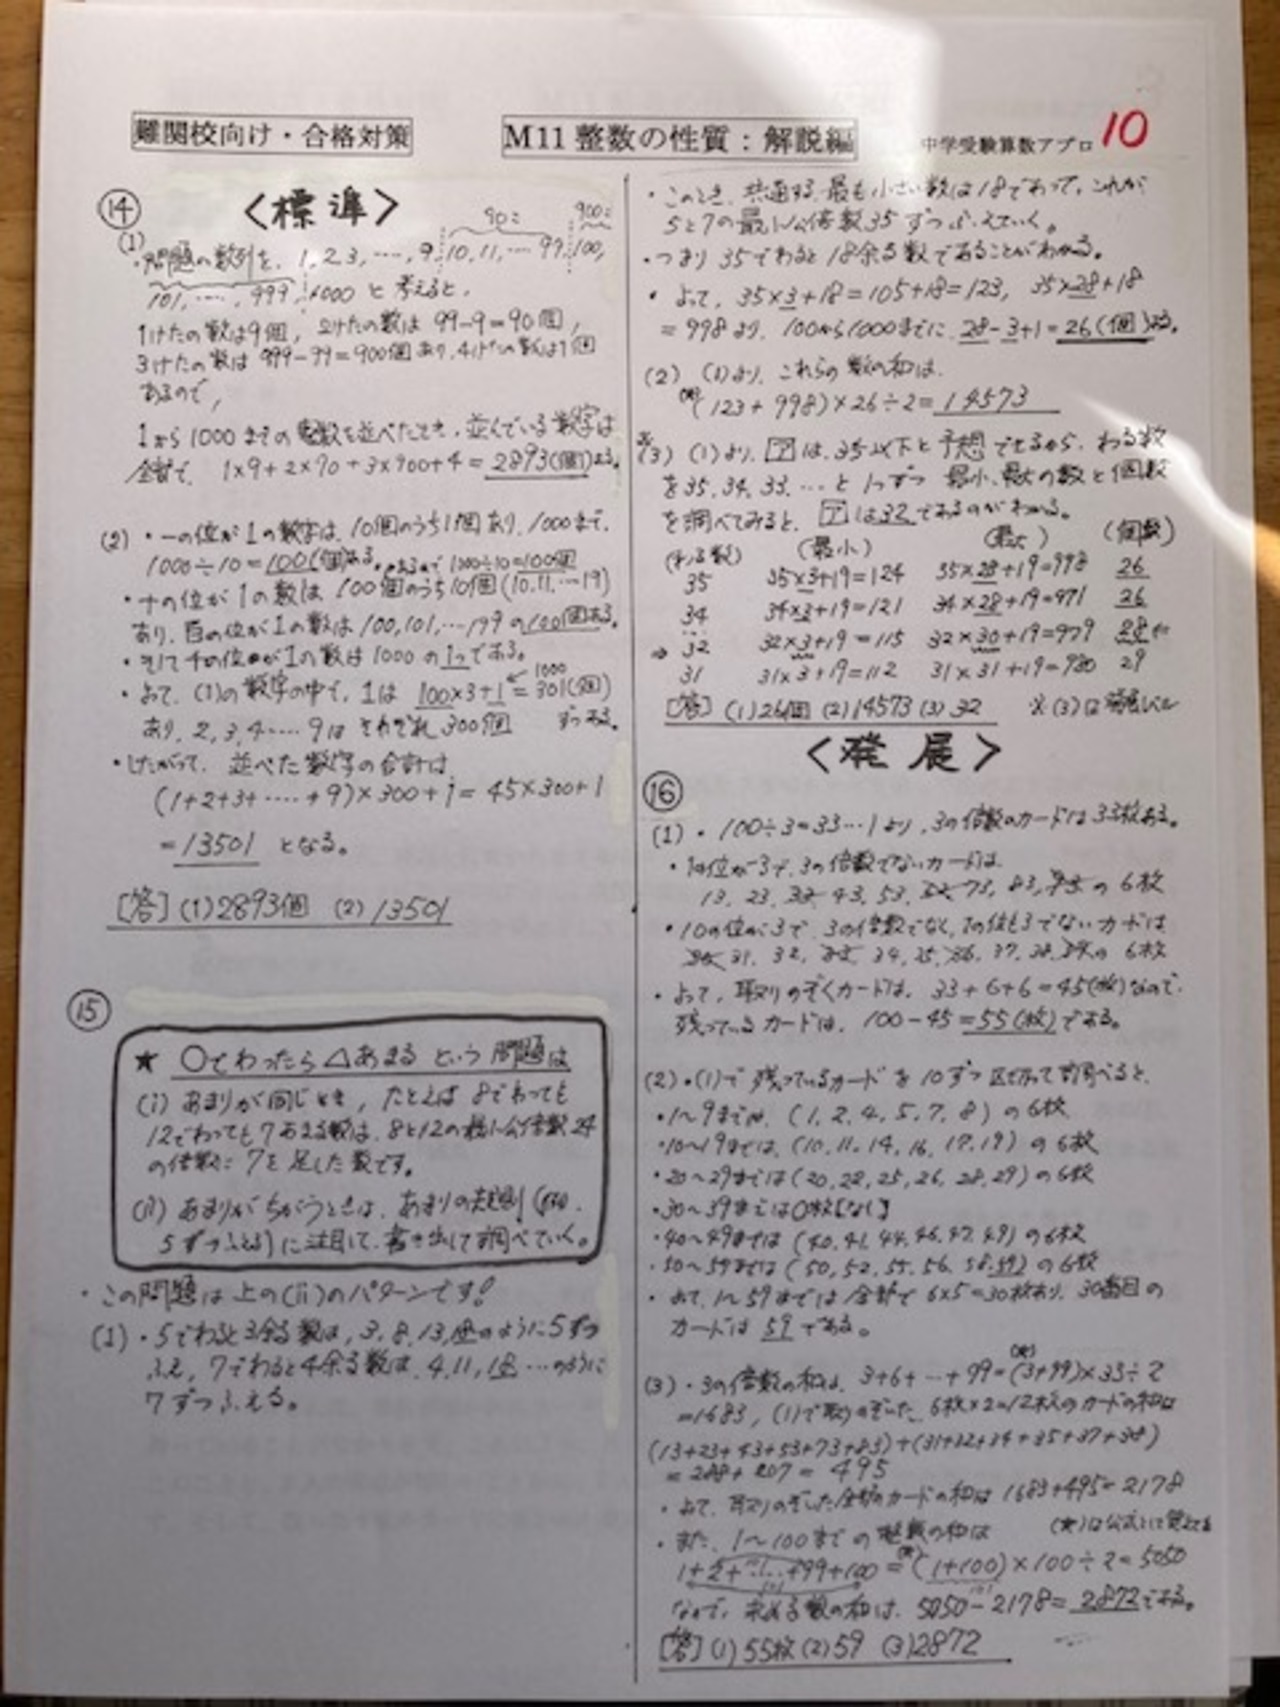 難関校向け・合格対策
M11 整数の性質：解説編
中学受験算数アプロ 10
⑭ 〈標準〉
(1)
90こ 900こ
・問題の数列を、1, 2, 3, …, 9, 10, 11, … 99, 100,
101, …, 999, 1000 と考えると、
1けたの数は9個, 2けたの数は 99-9=90個,
3けたの数は 999-99=900個あり、4けたの数は1個
あるので,
1から1000までの整数を並べたとき、並んでいる数字は
全部で、1×9+2×90+3×900+4=2893(個)ある。
(2) ・一の位が1の数字は、10個のうち1個あり、1000まで、
1000÷10=100(個)ある。あるので 1000÷10=100個
・十の位が1の数は 100個のうち10個(10,11,…19)
あり、百の位が1の数は100,101,…199の100個ある。
・そして千の位が1の数は1000の1つである。
・よって、(1)の数字の中で、1は 100×3+1=301(個)
1000
あり、2, 3, 4 …… 9は それぞれ300個 ずつある。
・したがって、並べた数字の合計は
(1+2+3+……+9)×300+1=45×300+1
=13501 となる。
[答] (1)2893個 (2)13501
⑮
★ ○でわったら△あまる という問題は
(i) あまりが同じとき, たとえば 8でわっても
12でわっても7あまる数は、8と12の最小公倍数24
の倍数に 7を足した数です。
(ii) あまりがちがうときは、あまりの規則(
5ずつふえる)に注目して、書き出して調べていく。
・この問題は上の(ii)のパターンです！
(1) ・5でわると3余る数は, 3, 8, 13, 18のように5ずつ
ふえ, 7でわると4余る数は、4, 11, 18 …のように
7ずつふえる。
・このとき、共通する最も小さい数は18であって、これが
5と7の最小公倍数35ずつふえていく。
・つまり 35でわると18余る数であることがわかる。
・よって, 35×3+18=105+18=123, 35×28+18
=998より、100から1000までに、28-3+1=26(個)ある。
(2) (1)より、これらの数の和は、
(123+998)×26÷2=14573
(3) (1)より、アは、35以下と予想できるから、わる数
を35, 34, 33, …と 1つずつ 最小、最大の数と個数
を調べてみると、アは32であるのがわかる。
(わる数) (最小) (最大) (個数)
35 35×3+19=124 35×28+19=998 26
34 34×3+19=121 34×28+19=971 26
⇒ 32 32×3+19=115 32×30+19=979 28
31 31×3+19=112 31×31+19=980 29
[答] (1)26個 (2)14573 (3)32 ※(3)は発展レベル
〈発展〉
⑯
(1) ・100÷3=33…1より, 3の倍数のカードは33枚ある。
・1の位が3で、3の倍数でないカードは
13, 23, 33, 43, 53, 63, 73, 83, 93 の 6枚
・10の位が3で、3の倍数でなく, 1の位も3でないカードは
30, 31, 32, 33, 34, 35, 36, 37, 38, 39の 6枚
・よって, 取りのぞくカードは, 33+6+6=45(枚)なので、
残っているカードは, 100-45=55(枚)である。
(2) ・(1)で残っているカードを10ずつ区切って調べると、
・1〜9までは, (1, 2, 4, 5, 7, 8) の6枚
・10〜19までは, (10, 11, 14, 16, 17, 19) の6枚
・20〜29までは (20, 22, 25, 26, 28, 29) の6枚
・30〜39までは0枚[なし]
・40〜49までは (40, 41, 44, 46, 47, 49) の6枚
・50〜59までは (50, 52, 55, 56, 58, 59) の6枚
・よって、1〜59までは全部で 6×5=30枚あり, 30番目の
カードは59である。
(3) ・3の倍数の和は, 3+6+…+99=(3+99)×33÷2
=1683, (1)で取りのぞいた 6枚×2=12枚のカードの和は
(13+23+43+53+73+83)+(31+32+34+35+37+38)
=288+207=495
・よって、取りのぞいた全部のカードの和は 1683+495=2178
・また、1〜100までの整数の和は (★)は公式として覚える
1+2+……+99+100=(1+100)×100÷2=5050
なので、求める数の和は、5050-2178=2872である。
[答](1)55枚(2)59 (3)2872